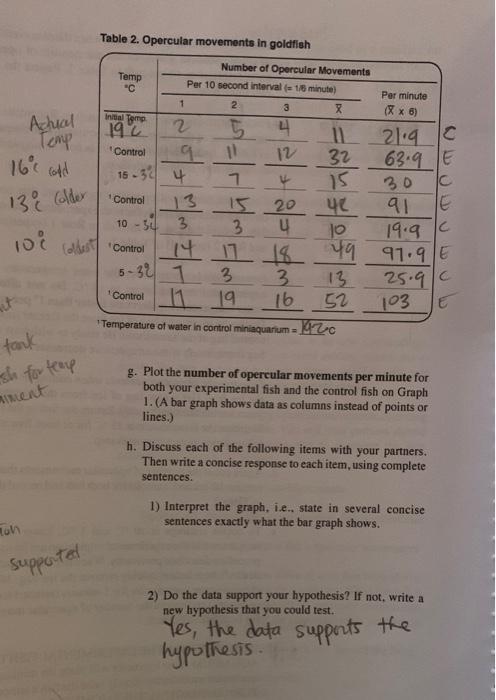 Table 2. Opercular movements in goldfish
Number of Opercular Movements
Temp °C
Per 10 second interval (= 1/6 minute)
Per minute
1 2 3 X̄ (X̄ x 6)
Actual Temp
Initial Temp.
19°C 2 5 4 11 21.9 C
¹Control 9 11 12 32 63.9 E
16°C cold 15 - 3°C 4 7 4 15 30 C
13°C Colder ¹Control 13 15 20 48 91 E
10 - 3°C 3 3 4 10 19.9 C
10°C Coldest ¹Control 14 17 18 49 97.9 E
5 - 3°C 7 3 3 13 25.9 C
¹Control 17 19 16 52 103 E
¹Temperature of water in control miniaquarium = °C
tank
for temp
g. Plot the number of opercular movements per minute for
both your experimental fish and the control fish on Graph
1. (A bar graph shows data as columns instead of points or
lines.)
h. Discuss each of the following items with your partners.
Then write a concise response to each item, using complete
sentences.
1) Interpret the graph, i.e., state in several concise
sentences exactly what the bar graph shows.
supported
2) Do the data support your hypothesis? If not, write a
new hypothesis that you could test.
Yes, the data supports the
hypothesis.